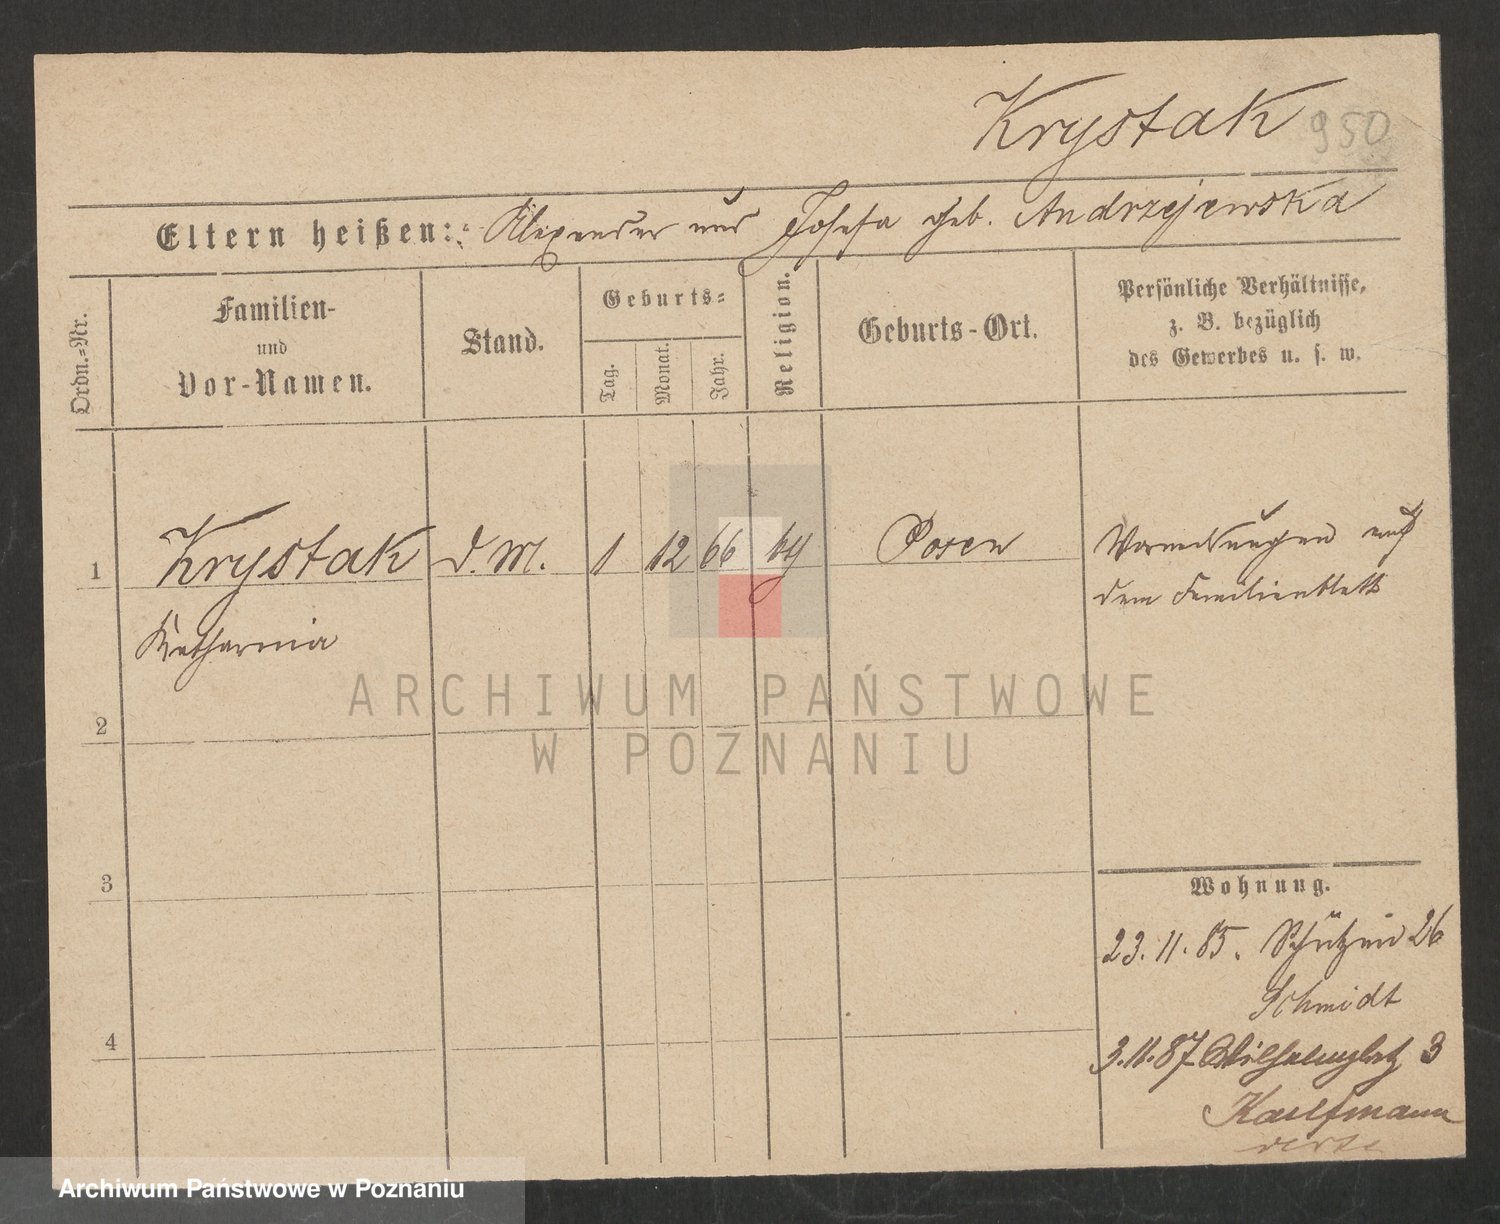 Krystak 950
Eltern heißen: Alexander und Josefa geb. Andrzejewska
Ordn.=Nr.
Familien-
und
Vor-Namen.
Stand.
Geburts=
Tag.
Monat.
Jahr.
Religion.
Geburts-Ort.
Persönliche Verhältnisse,
z. B. bezüglich
des Gewerbes u. s. w.
1 Krystak d. M. 1 12 66 Posen Bemerkungen auf
Katharina dem Familienblatt
2
3
4
Wohnung.
23.11.85. Schützen 26
Schmidt
3.11.87 Wilhelmplatz 3
Kaufmann
ARCHIWUM PAŃSTWOWE
W POZNANIU
Archiwum Państwowe w Poznaniu